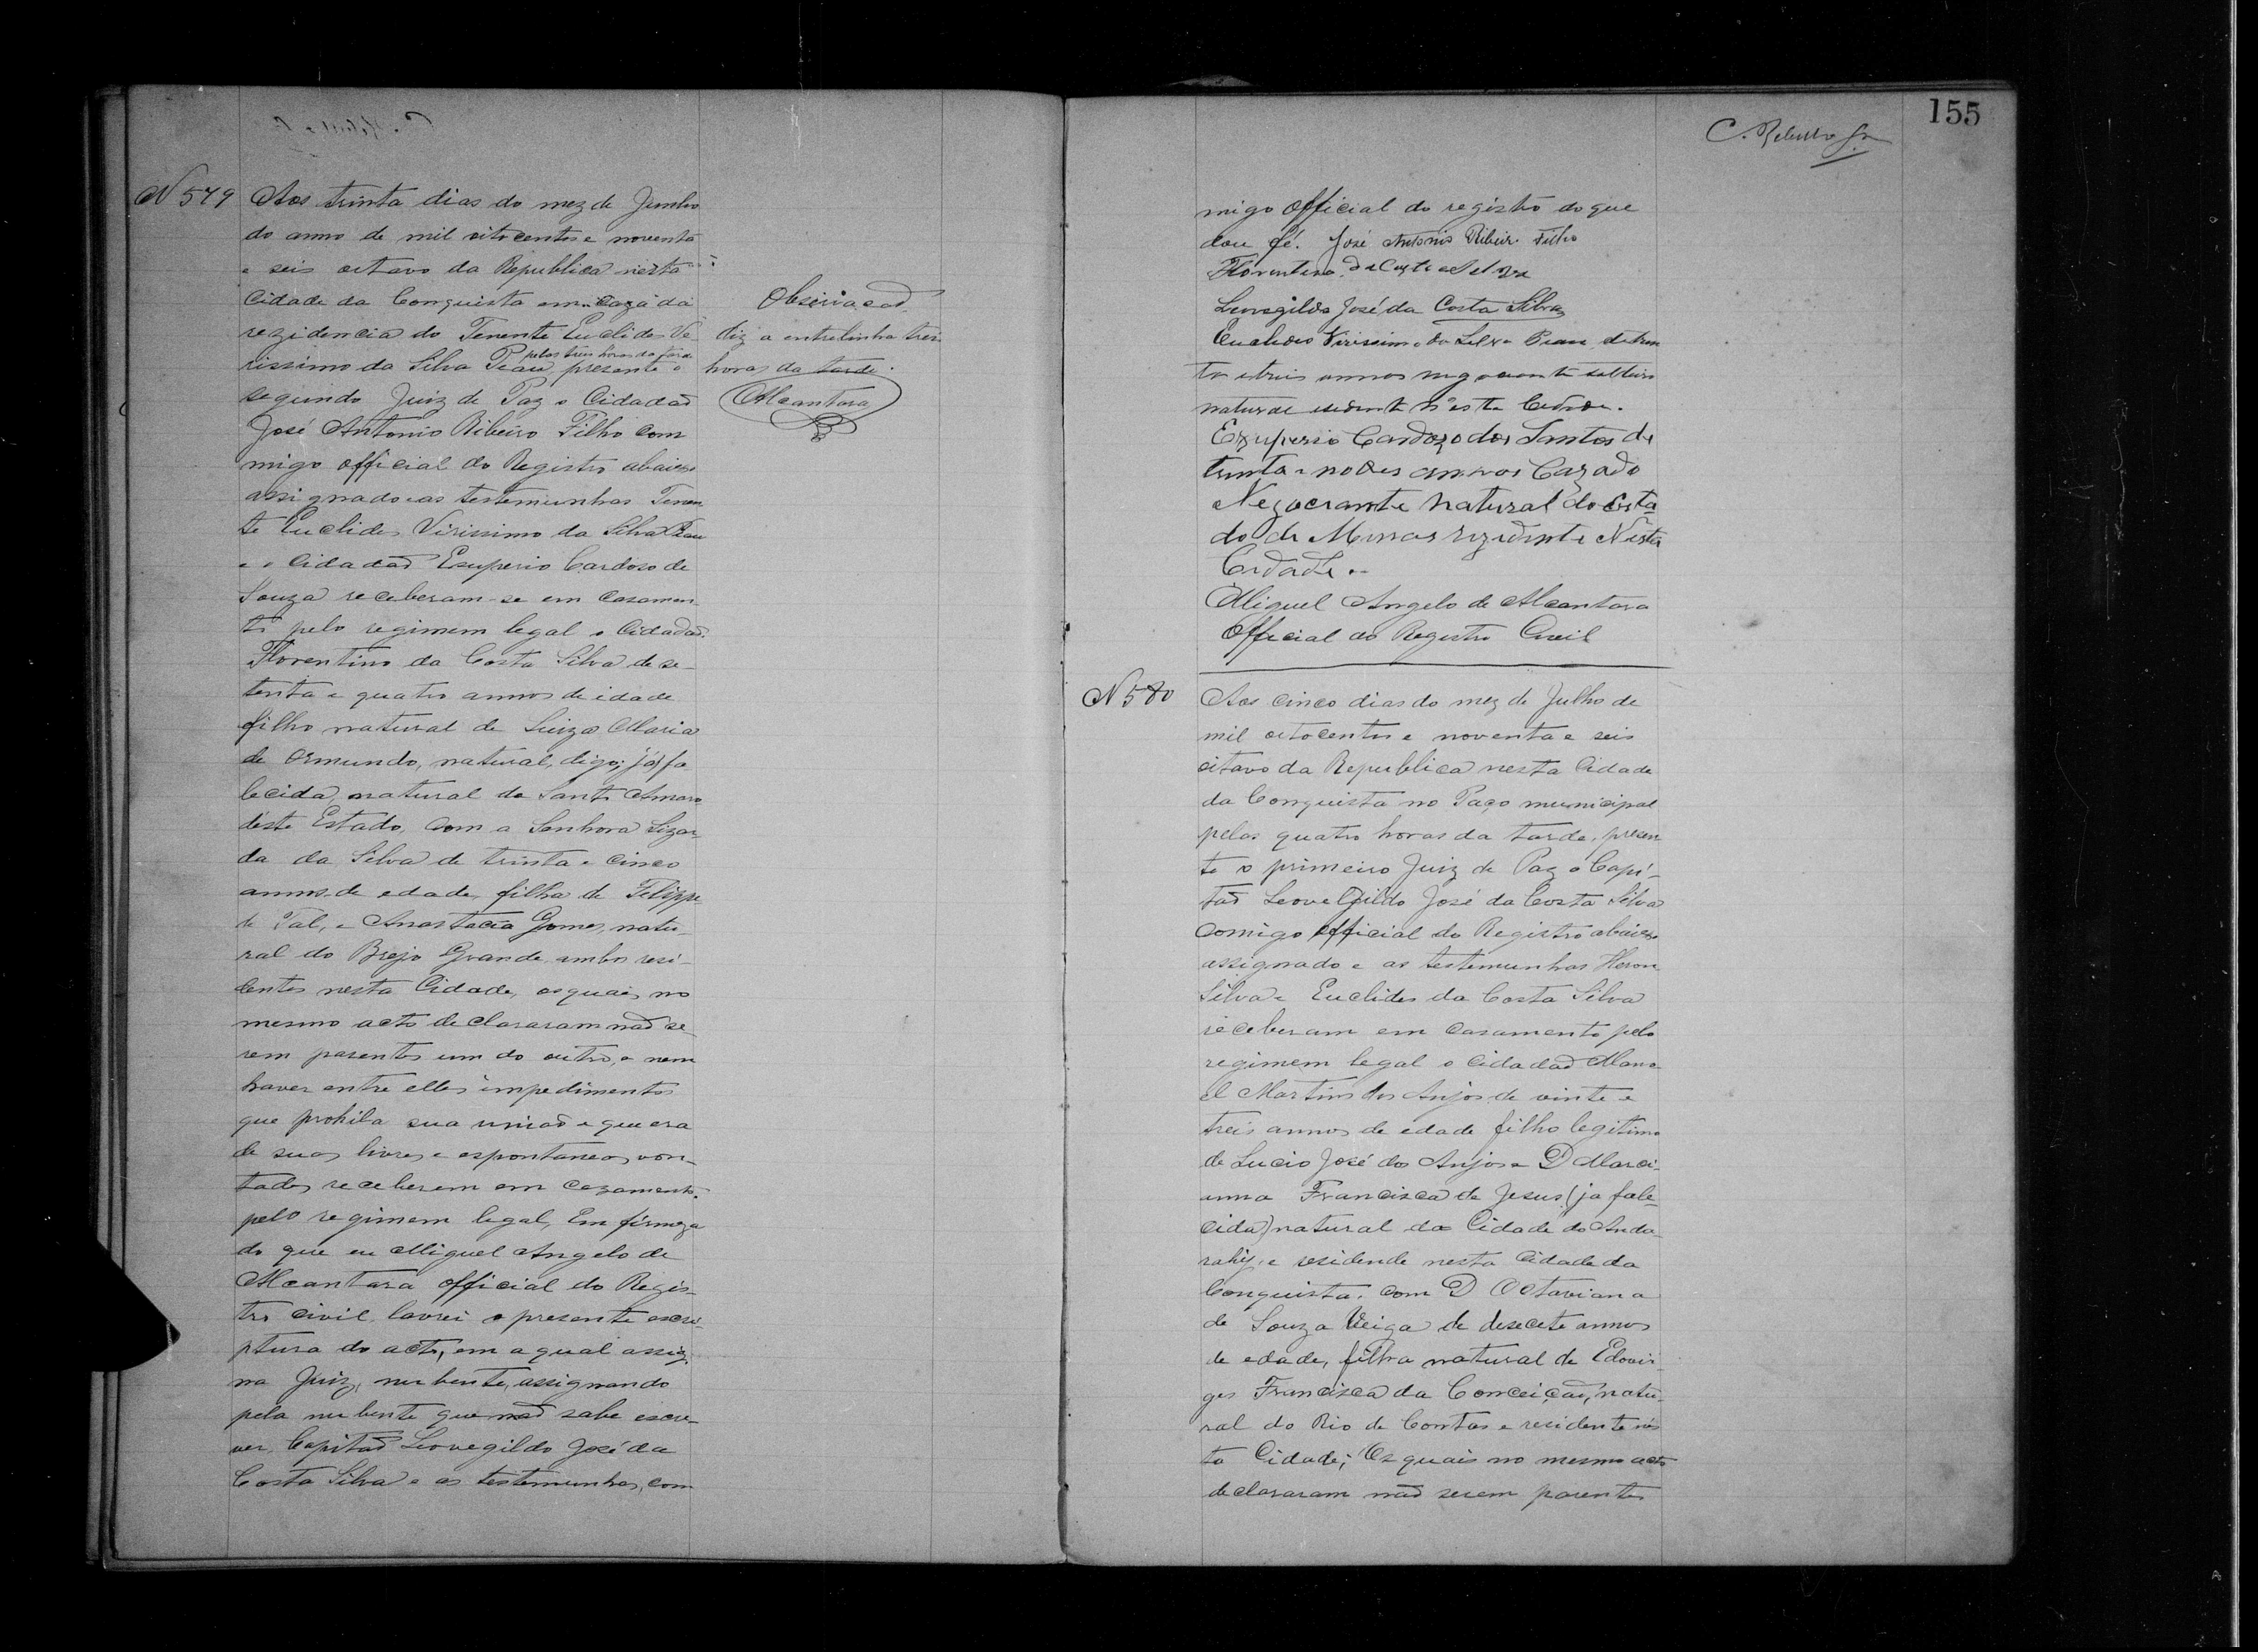 N 579
Aos trinta dias do mez de Junho
do anno de mil oitocentos e noventa
e seis oitavo da Republica nesta
Cidade da Conquista em caza da
rezidencia do Tenente Euclides Ve
rissimo da Silva Piau, pelas treis horas da tarde presente o
segundo Juiz de Paz o Cidadaõ
José Antonio Ribeiro Filho com
migo official do Registro abaixo
assignado e as testemunhas Tenen
te Euclides Virissimo da Silva Piau
e o Cidadaõ Exuperio Cardoso de
Souza receberam-se em Casamen
to pelo regimem legal o Cidadaõ
Florentino da Costa Silva de se-
tenta e quatro annos de idade
filho natural de Luiza Maria
de Ormundo, natural, digo, já fa
lecida, natural de Santo Amaro
deste Estado, com a Senhora Lizar
da da Silva de trinta e cinco
annos de edade, filha de Filippe
de Tal, e Anastacia Gomes, natu-
ral do Brejo Grande ambos resi-
dentes nesta Cidade, os quais no
mesmo acto declararam naõ se
rem parentes um do outro, e nem
haver entre elles impedimentos
que prohiba sua uniaõ e que era
de suas livres e espontaneas von-
tades receberem em Cazamento
pelo regimem legal, Em firmeza
do que eu Miguel Angelo de
Alcantara official do Regis-
tro civil lavrei o presente escri-
ptura do acto, em a qual assig-
na Juiz, nubente, assignando
pela nubente que naõ sabe escre-
ver Capitaõ Leovegildo José da
Costa Silva e as testemunhas, com
Observacaõ
diz a entrelinha treis
horas da tarde.
Alcantara
155
migo official do registro do que
dou fé. José Antonio Ribeiro Filho
Florentino da Costa Silva
Leovegildo José da Costa Silva
Euclides Virissimo da Silva Piau, de trin
ta e treis annos negociante solteiro
natural e sidente n'esta Cidade.
Exuperio Cardozo dos Santos de
trinta e nove annos Cazado
Negociante natural do Esta
do de Minas rezidente Nesta
Cidade..
Miguel Angelo de Alcantara
Official do Registro Civil
N 580
Aos cinco dias do mez de Julho de
mil oitocentos e noventa e seis
oitavo da Republica nesta Cidade
da Conquista no Paço municipal
pelas quatro horas da tarde, presen
te o primeiro Juiz de Paz o Capi-
taõ Leovegildo José da Costa Silva
comigo official do Registro abaixo
assignado e as testemunhas Heron
Silva e Euclides da Costa Silva
receberam em Casamento pelo
regimem legal o Cidadaõ Mano
el Martins dos Anjos de vinte e
treis annos de edade filho legitimo
de Lucio José dos Anjos e D Marci-
anna Francisca de Jesus (ja fale-
cida) natural da Cidade do Anda-
rahy, e residende nesta Cidade da
Conquista. com D Octaviana
de Souza Veiga de desecete annos
de edade, filha natural de Edovir-
ges Francisca da Conceição, natu-
ral do Rio de Contas e residente nes
ta Cidade; Os quais no mesmo acto
declararam naõ serem parentes